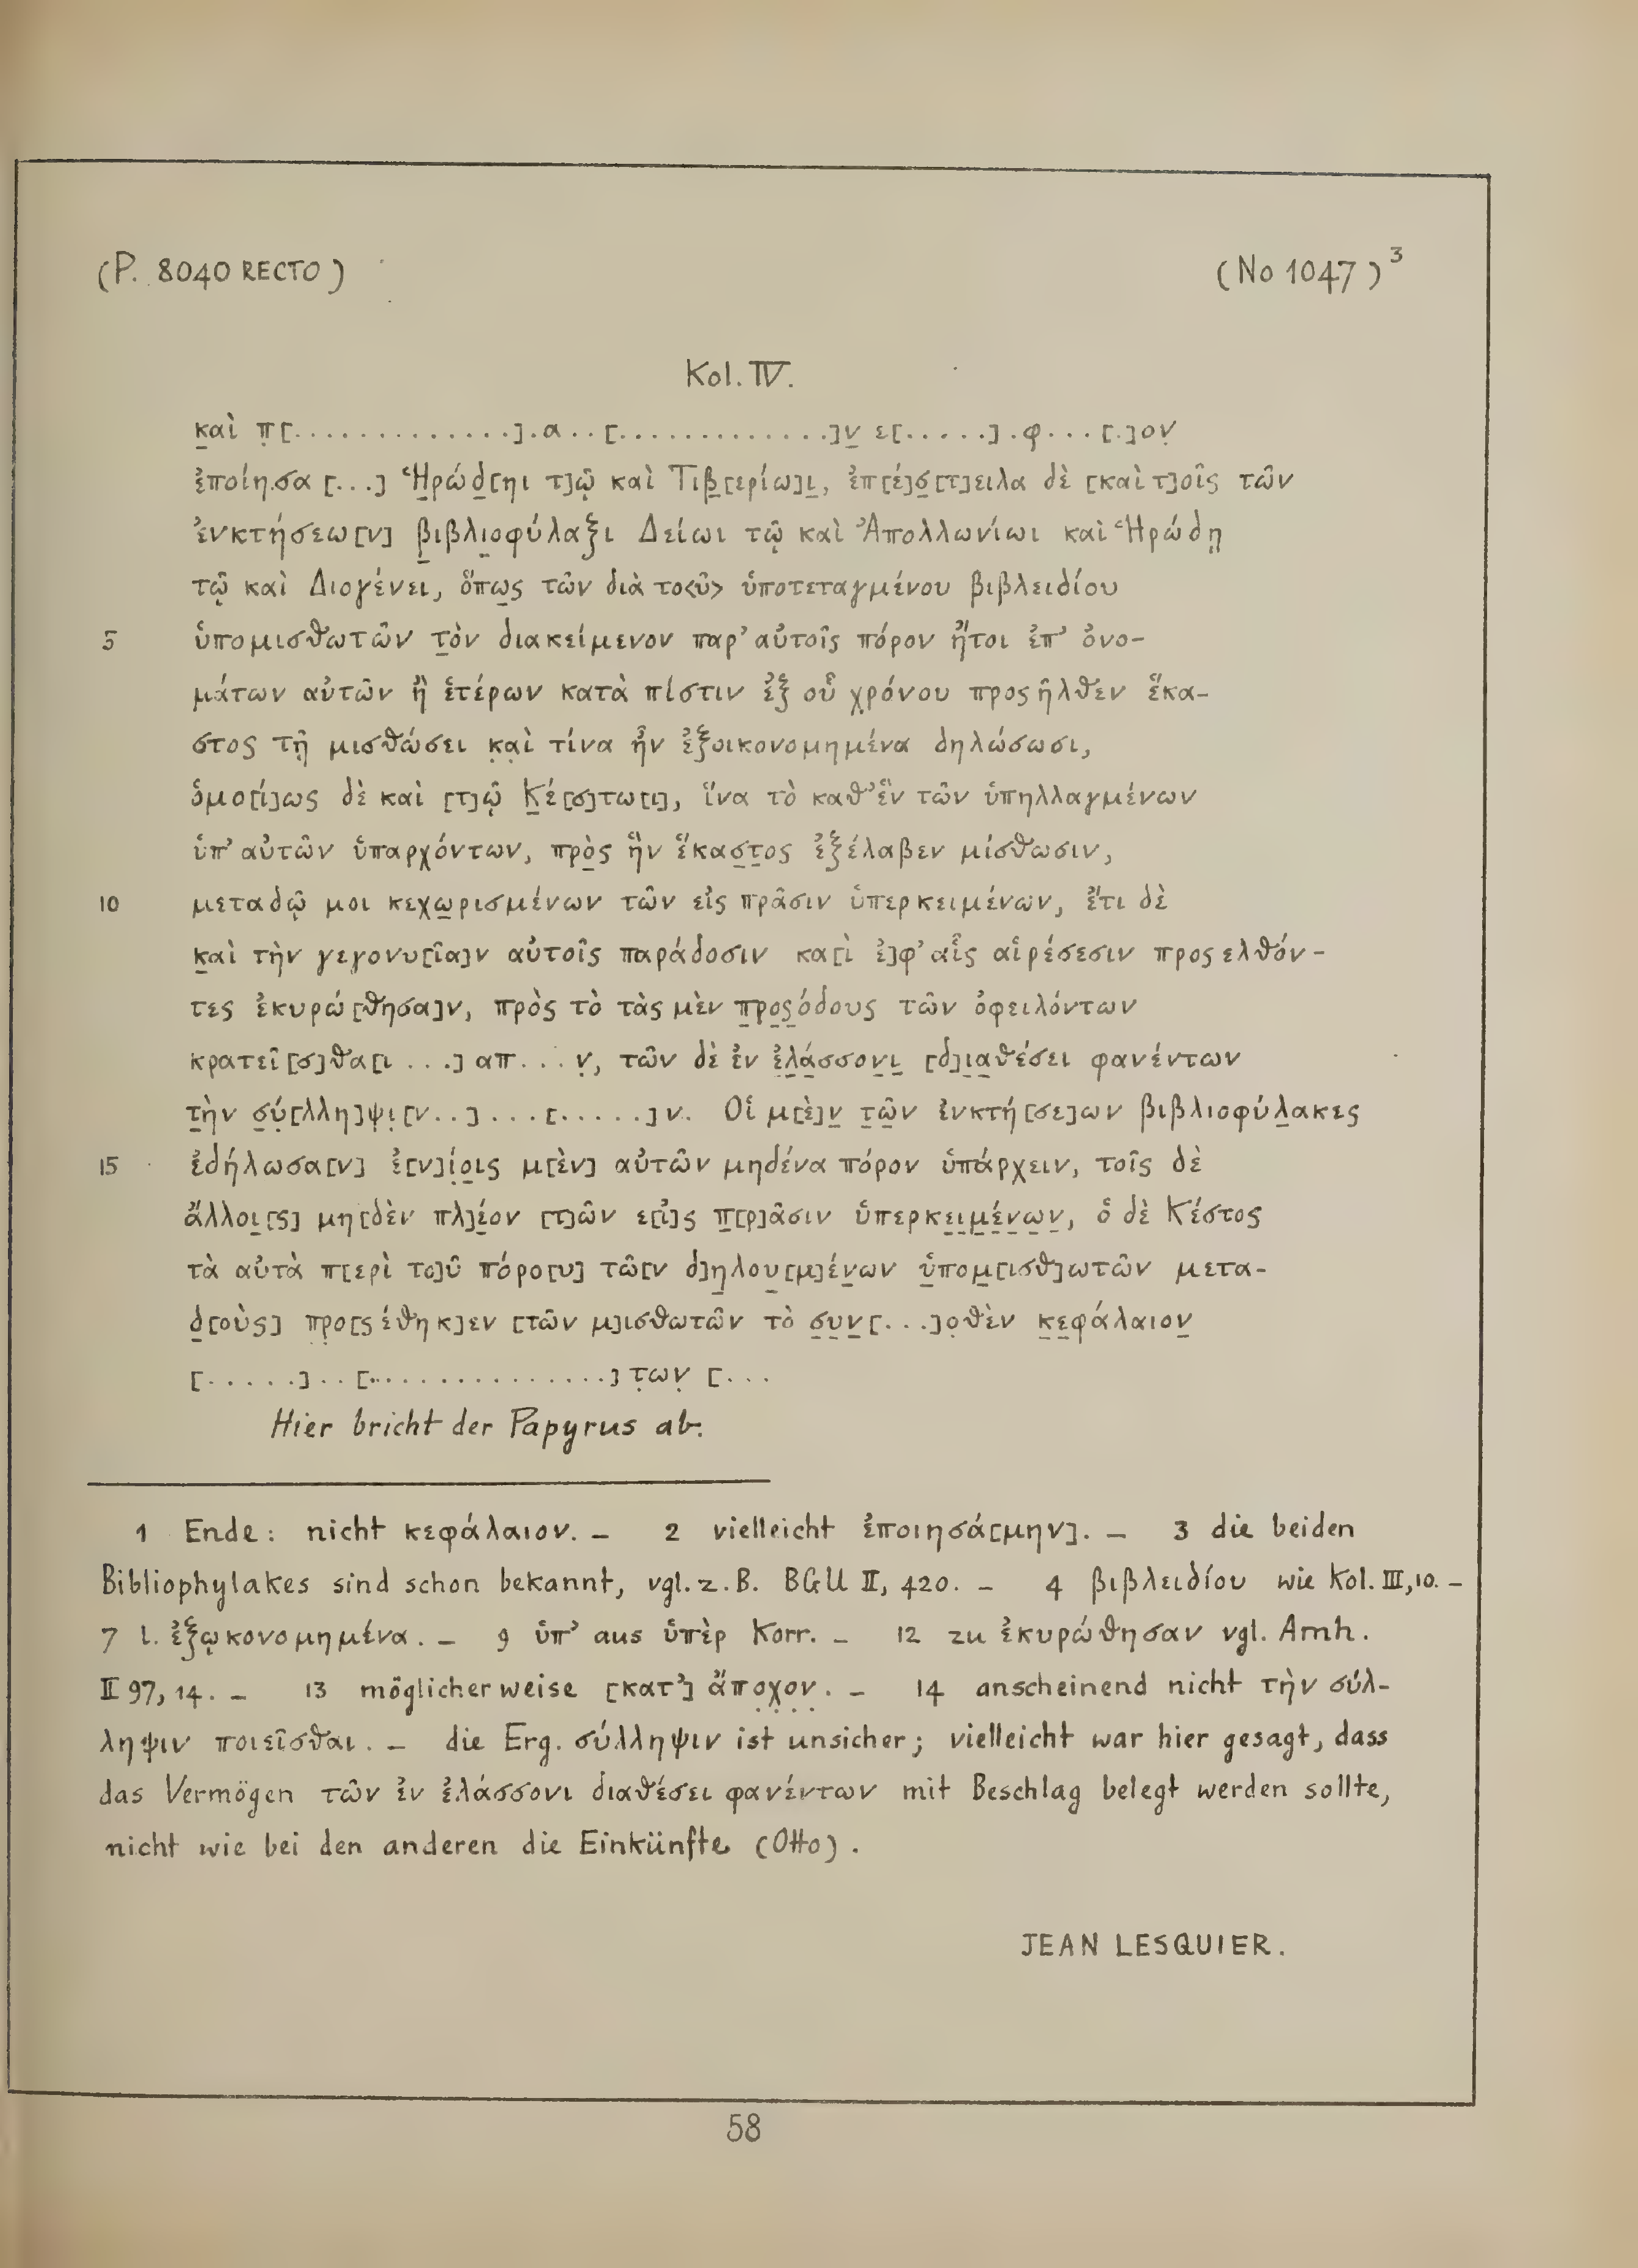 (P. 8040 RECTO) (No 1047)³
Kol. IV.
κ̣αὶ π̣[.............].α..[.............]ν̣ ε[.....].φ...[.]ον̣
ἐποίησα [...] Ἡρώδ̣[ηι τ]ῷ καὶ Τιβ̣[ερίω]ι̣, ἐπ[έ]σ̣[τ]ειλα δὲ [καὶ τ]οῖς τῶν
ἐνκτήσεω[ν] β̣ιβλι̣οφύλαξι Δείωι τῷ καὶ Ἀπολλωνίωι καὶ Ἡρώδῃ
τῷ καὶ Διογένει, ὅπω̣ς τῶν διὰ το<ῦ> ὑποτεταγμένου βιβλειδίου
5 ὑπομισθωτῶν τ̣ὸν διακείμενον παρ’ αὐτοῖς πόρον ἤτοι ἐπ’ ὀνο-
μάτων αὐτῶν ἢ ἑτέρων κατὰ πίστιν ἐξ οὗ χρόνου προςῆλθεν ἕκα-
στος τῇ μισθώσει κ̣α̣ὶ τίνα ἦν ἐξοικονομημένα δηλώσωσι,
ὁμο[ί]ως δὲ καὶ [τ]ῷ Κ̣έ[σ]τω[ι], ἵνα τὸ καθ’ ἓν τῶν ὑπηλλαγμένων
ὑπ’ αὐτῶν ὑπαρχόντων, πρὸ̣ς ἣν ἕκασ̣τ̣ος ἐξέλαβεν μίσθωσιν,
10 μεταδῷ μοι κεχω̣ρισμένων τῶν εἰς πρᾶσιν ὑπερκειμένων, ἔτι δὲ
κ̣αὶ τὴν γεγονυ[ῖα]ν αὐτοῖς παράδοσιν κα[ὶ ἐ]φ’ αἷς αἱρέσεσιν προςελθόν-
τες ἐκυρώ[θησα]ν, πρὸς τὸ τὰς μὲν π̣ρ̣ο̣ς̣όδους τῶν ὀφειλόντων
κρατεῖ[σ]θα[ι ...] απ...ν̣, τῶν δὲ ἐν ἐ̣λ̣ά̣σσον̣ι̣ [δ]ι̣α̣θέσει φανέντων
τ̣ὴν σ̣ύ̣[λλη]ψ̣ι̣[ν..]...[.....]ν. Οἱ μ[ὲ]ν̣ τ̣ῶ̣ν ἐνκτή[σε]ων βιβλιοφύλ̣ακες
15 ἐδήλωσα[ν] ἐ[ν]ί̣ο̣ις μ[ὲν] αὐτῶν μηδένα πόρον ὑπάρχειν, τοῖς δὲ
ἄλλοι̣[ς] μη[δὲν πλ]έ̣ον [τ]ῶν ε[ἰ]ς π̣[ρ]ᾶσιν ὑπερκε̣ι̣μ̣έ̣ν̣ω̣ν̣, ὁ δὲ Κέστος
τὰ αὐτὰ π[ερὶ το]ῦ πόρο[υ] τῶ[ν δ]η̣λου̣[μ]έν̣ων ὑ̣πομ̣[ισθ]ωτῶν μετα-
δ̣[οὺς] π̣ρ̣ο[ςέθηκ]εν [τῶν μ]ισθωτῶν τὸ σ̣υ̣ν̣[...]ο̣θὲν κ̣ε̣φάλαιον̣
[.....]..[...............]τ̣ων̣ [...
Hier bricht der Papyrus ab.
1 Ende: nicht κεφάλαιον. – 2 vielleicht ἐποιησά[μην]. – 3 die beiden
Bibliophylakes sind schon bekannt, vgl. z. B. BGU II, 420. – 4 βιβλειδίου wie Kol. III, 10. –
7 l. ἐξῳκονομημένα. – 9 ὑπ’ aus ὑπὲρ Korr. – 12 zu ἐκυρώθησαν vgl. Amh.
II 97, 14. – 13 möglicherweise [κατ’] ἄπ̣ο̣χ̣ο̣ν̣. – 14 anscheinend nicht τὴν σύλ-
ληψιν ποιεῖσθαι. – die Erg. σύλληψιν ist unsicher; vielleicht war hier gesagt, dass
das Vermögen τῶν ἐν ἐλάσσονι διαθέσει φανέντων mit Beschlag belegt werden sollte,
nicht wie bei den anderen die Einkünfte (Otto).
JEAN LESQUIER.
58